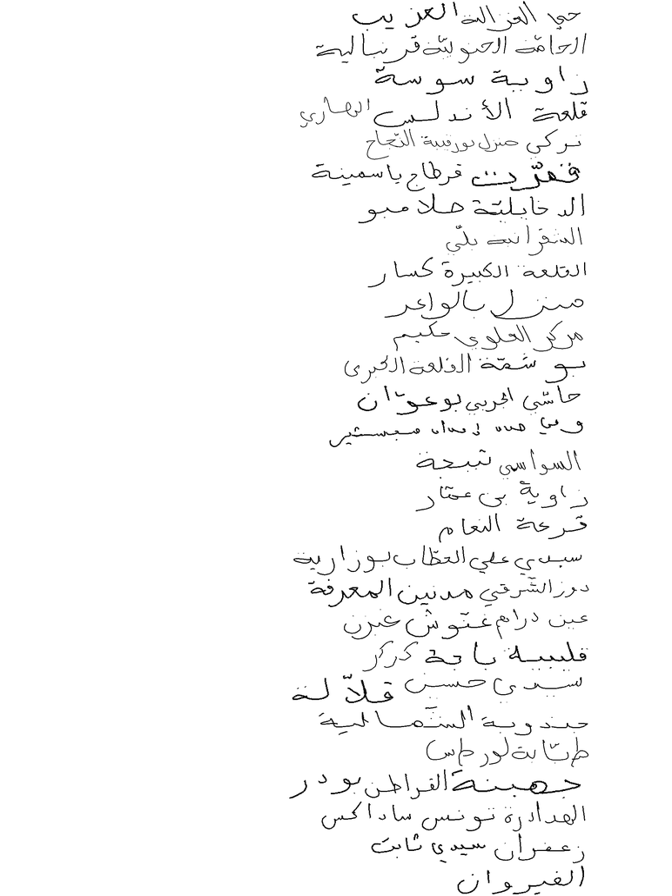 حي الغزالة العزيب
الحامّة الحنوليّة قرنبالية
زاوية سوسة
قلعة الأندلس
تركي منزل بورقيبة النجاح
قمّرت قرطاج ياسمينة
الدخايليّة صلامبو
الشقرانية بلّي
القلعة الكبيرة كسار
منزل بالواعر
مركز العلوي حكيم
بوشمّة القلعة الكبرى
حاشي الجربي بوعوّان
السواسي نبيحة
زاوية بن عمّار
قرعة النعام
سيدي علي الحطّاب بوزارية
دوز الشّرقي مدنين المعرفة
عين درام غنّوش عبرن
قليبية باجة كركر
سيدي حسين قلاّلة
جندوبة الشّمالية
جهينة القراطن بودر
الهدادرة تونس ساداكس
زعفران سيدي ثابت
القيروان